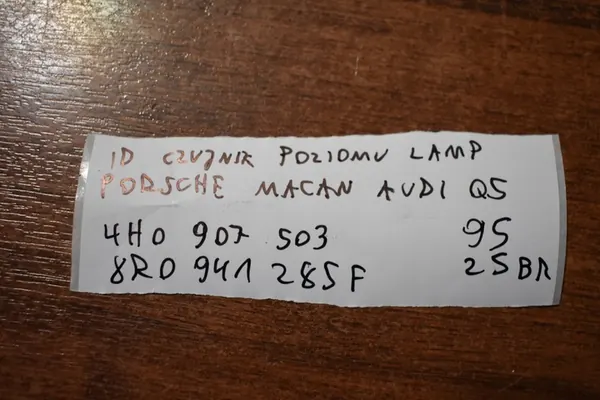 ID CZUJNIK POZIOMU LAMP
PORSCHE MACAN AUDI Q5
4H0 907 503 95
8R0 941 285F 25BR